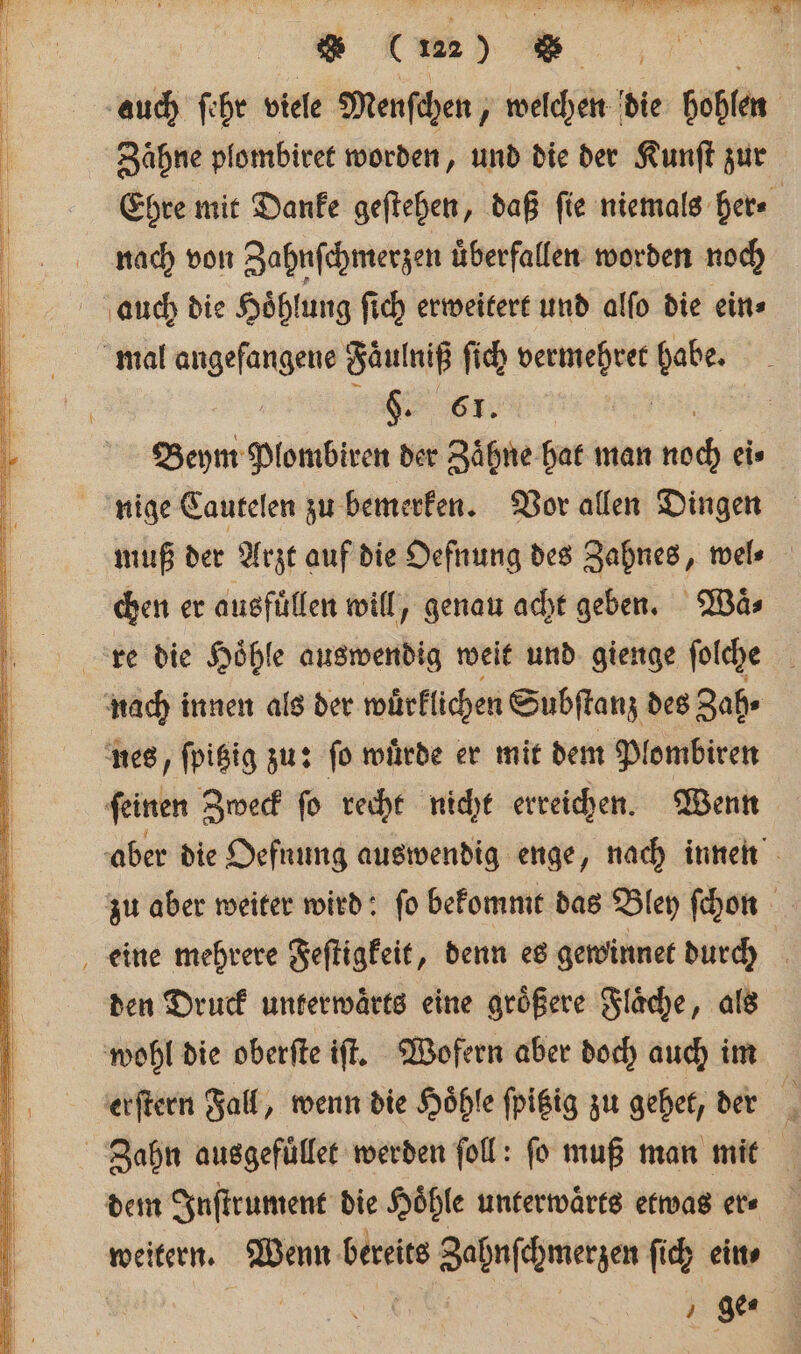 ❀ ( 122 ) ❀
auch ſehr viele Menſchen, welchen die hohlen
Zaͤhne plombiret worden, und die der Kunſt zur
Ehre mit Danke geſtehen, daß ſie niemals her⸗
nach von Zahnſchmerzen uͤberfallen worden noch
auch die Hoͤhlung ſich erweitert und alſo die ein⸗
mal angefangene Faͤulniß ſich vermehret habe.
§. 61.
Beym Plombiren der Zaͤhne hat man noch ei⸗
nige Cautelen zu bemerken. Vor allen Dingen
muß der Arzt auf die Oefnung des Zahnes, wel⸗
chen er ausfuͤllen will, genau acht geben. Waͤ⸗
re die Hoͤhle auswendig weit und gienge ſolche
nach innen als der wuͤrklichen Subſtanz des Zah⸗
nes, ſpitzig zu: ſo wuͤrde er mit dem Plombiren
ſeinen Zweck ſo recht nicht erreichen. Wenn
aber die Oefnung auswendig enge, nach innen
zu aber weiter wird: ſo bekommt das Bley ſchon
eine mehrere Feſtigkeit, denn es gewinnet durch
den Druck unterwaͤrts eine groͤßere Flaͤche, als
wohl die oberſte iſt. Wofern aber doch auch im
erſtern Fall, wenn die Hoͤhle ſpitzig zu gehet, der
Zahn ausgefuͤllet werden ſoll: ſo muß man mit
dem Inſtrument die Hoͤhle unterwaͤrts etwas er⸗
weitern. Wenn bereits Zahnſchmerzen ſich ein⸗
ge⸗